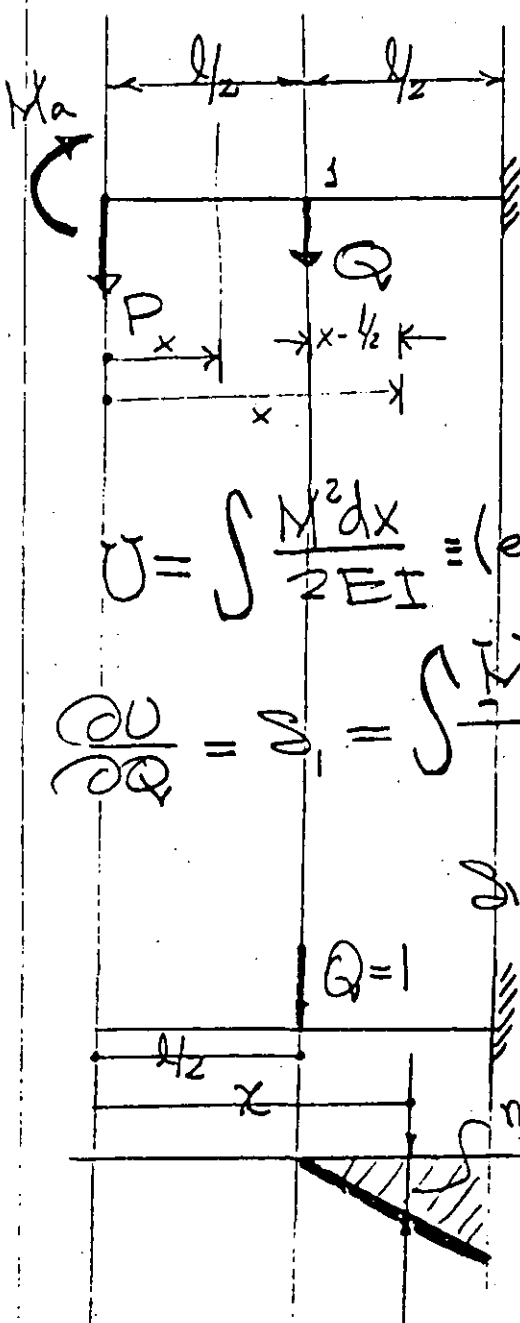 l/2 l/2
Ma
1
Q
P
x x-l/2
x
U = ∫ M²dx / 2EI = (e
∂U/∂Q = δ₁ = ∫
δ₁
Q=1
l/2
x